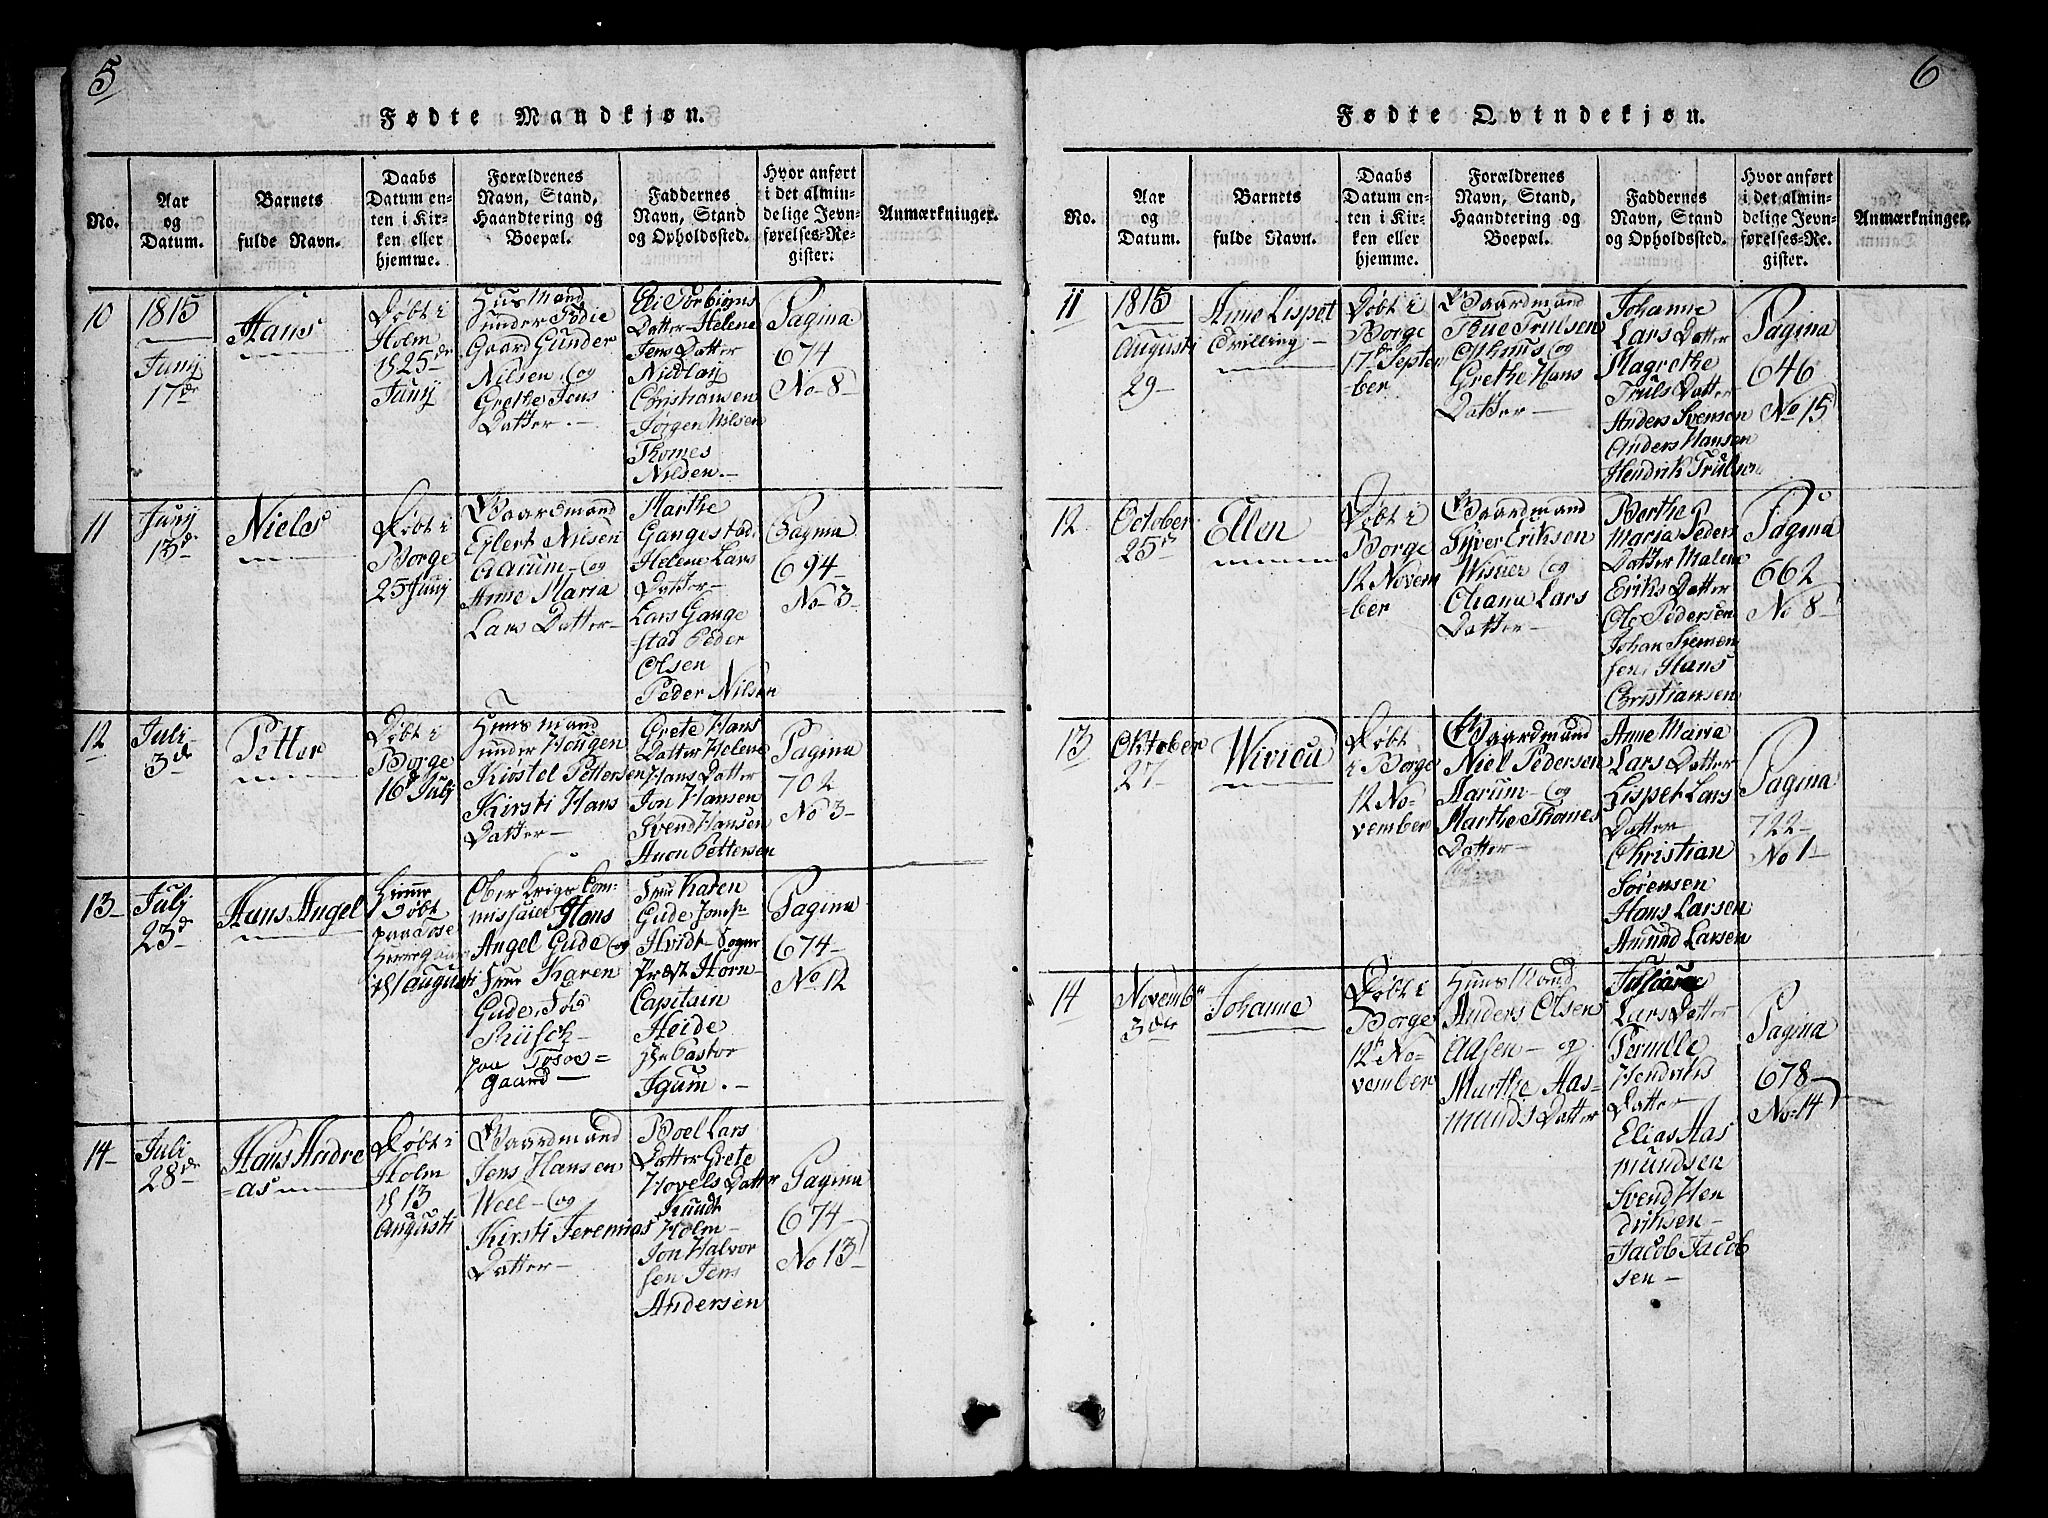 5
Fødte Mandkjøn.
No.
Aar
og
Datum.
Barnets
fulde Navn.
Daabs
Datum en-
ten i Kir-
ken eller
hjemme.
Forældrenes
Navn, Stand,
Haandtering og
Boepæl.
Faddernes
Navn, Stand
og Opholdssted.
Hvor anført
i det almin-
delige Jevn-
førelses-Re-
gister.
Anmærkninger.
10
1815
Junij
17de
Hans
Døbt i
Holm
d 25de
Junij
Huusmand
under
Gaard Gunder
Nilsen og
Grethe Jens
Datter.
Eli Torbiørns
Datter Helene
Jens Datter
Nicolay
Christiansen
Jørgen Nilsen
Thomes
Nilsen.
Pagina
674
No 8
11
Junij
13de
Niels
Døbt i
Borge
25 Junij
Gaardmand
Eylert Nilsen
Aarum og
Anne Maria
Lars Datter
Marthe
Gangestad
Helene Lars
Datter
Lars Gange
stad Peder
Olsen
Peder Nilsen
Pagina
694
No 3
12
Juli
3de
Petter
Døbt i
Borge
16de Julj
Huusmand
under Hougen
Kiøstel Pettersen
Kirsti Hans
Datter
Grete Hans
Datter Helene
Hans Datter
Jon Hansen
Svend Hansen
Anon Pettersen
Pagina
702
No 3
13
Julj
23de
Hans Angel
Hiemme
Døbt
paa
Herregaar
d 1 Augusti
Ober Krigs Com-
missaier Hans
Angel Gude og
Frue Karen
Gude, Fød
Rüsch
paa Tosoe=
gaard
Frue Karen
Gude Jomfr
Hvidt Sogne
Præst Horn
Capitain
Heide
Hr Pastor
Igum.
Pagina
674
No 12
14
Juli
28de
Hans Andre
=as
Døbt i
Holm
d 13
Augusti
Gaardmand
Jens Hansen
Weel og
Kirsti Jeremias
Datter
Boel Lars
Datter Grete
Hovels Datter
Knudt
Holm
Jon Halvor
sen Jens
Andersen
Pagina
674
No 13
6
Fødte Qvindekjøn.
No.
Aar
og
Datum.
Barnets
fulde Navn.
Daabs
Datum en-
ten i Kir-
ken eller
hjemme.
Forældrenes
Navn, Stand,
Haandtering og
Boepæl.
Faddernes
Navn, Stand
og Opholdssted.
Hvor anført
i det almin-
delige Jevn-
førelses-Re-
gister.
Anmærkninger.
11
1815
Augusti
29
Anne Lispet
Tvilling
Døbt i
Borge
17de Septem
=ber
Gaardmand
Trulsen
og
Grethe Hans
Datter
Johanne
Lars Datter
Magrethe
Truls Datter
Anders Svensen
Anders Hansen
Hendrik Trulsen
Pagina
646
No 15
12
October
25de
Ellen
Døbt i
Borge
12 Novem
=ber
Gaardmand
Syver Eriksen
Wisner og
Oliana Lars
Datter
Berthe
Maria Peders
Datter Malene
Eriks Datter
Ole Pedersen
Johan Siemen
sen, Hans
Christiansen
Pagina
662
No 8
13
Oktober
27
Wivicu
Døbt
i Borge
12 No-
vember
Gaardmand
Niel Pedersen
Aarum og
Marthe Thomes
Datter
Anne Maria
Lars Datter
Lispet Lars
Datter
Christian
Sørensen
Hans Larsen
Amund Larsen
Pagina
722
No 1
14
Novemb
3de
Johanne
Døbt i
Borge
12te No-
vember
Huusmand
Anders Olsen
Aasen og
Marthe Aas-
munds Datter
Lars Datter
Pernille
Hendriks
Datter
Elias Aas
mundsen
Svend Hen
driksen
Jacob Jacob
sen
Pagina
678
No 14